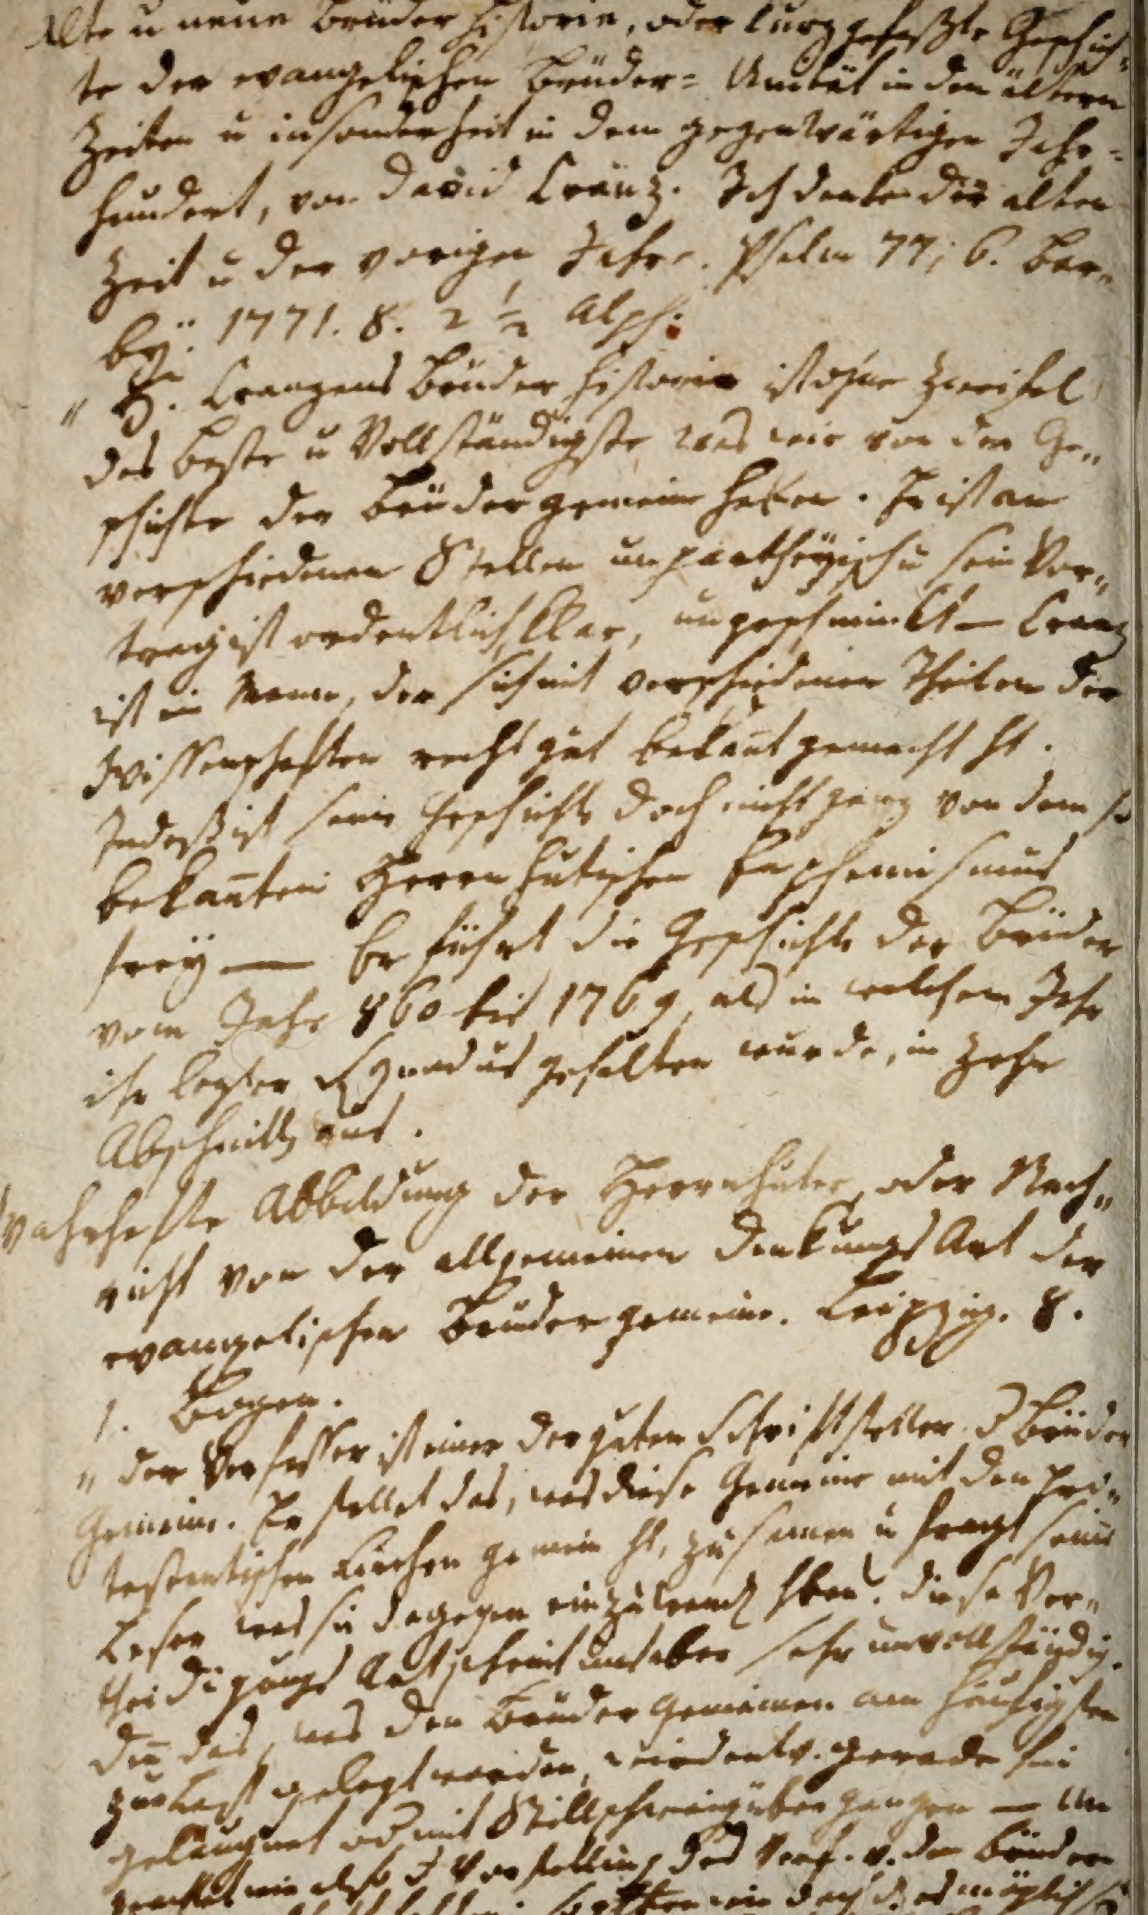 Alte u neue Brüder Historie, oder kurz gefaßte Geschich-
te der evangelischen Brüder-Unität in den ältern
Zeiten u insonderheit in dem gegenwärtigen Jahr-
hundert, von David Cranz. Ich denke der alten
Zeit u der vorigen Jahre. Psalm 77, 6. Bar-
by. 1771. 8. 2 1/2 Alph.
" H. Cranzens Brüder Historie ist ohne Zweifel
das beste u Vollständigste was wir von der Ge-
schichte der Brüdergemeine haben. Er ist an
verschiedenen Stellen unpartheyisch u sein Vor-
trag ist ordentlich, klar, ungeschminkt — Cranz
ist ein Mann, der sich mit verschiedenen Theilen der
Wissenschaften recht gut bekañt gemacht ht.
Indeß ist seine Geschichte doch nicht ganz von dem so
bekañten Herrnhutischen Euphemismus
frey — Er führt die Geschichte der Brüder
vom Jahr 860 bis 1769, als in welchem Jahr
ihr lezter Synodus gehalten wurde, in Zehn
Abschnitten aus.
Wahrhafte Abbildung der Herrnhuter, oder Nach-
richt von der allgemeinen Denkungs Art der
evangelischen Brüdergemeine. Leipzig. 8.
1. Bogen.
" Der Verfasser ist einer der guten Schriftsteller d Brüder
Gemeine. Er stellet das, was diese Gemeine mit den pro-
testantischen Kirchen gemein ht, zusamen u fragt seine
Leser was sie dagegen einzuwenden hben. Diese Ver-
theidigungs Art scheint uns aber sehr unvollständig.
Deñ das, was den Brüder Gemeinen am häufigsten
zur Last gelegt worden, wird entw. gerade hin
geläugnet od mit Stillschweigen übergangen — Un
Vorstellung des Verf. v. den Brüdern